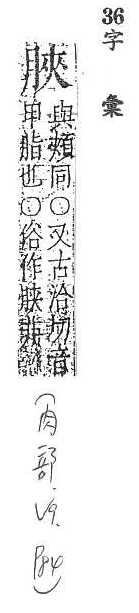 36字 彙
脥
與頰同○又古洽切音
甲脂也○俗作脥
(肉部.